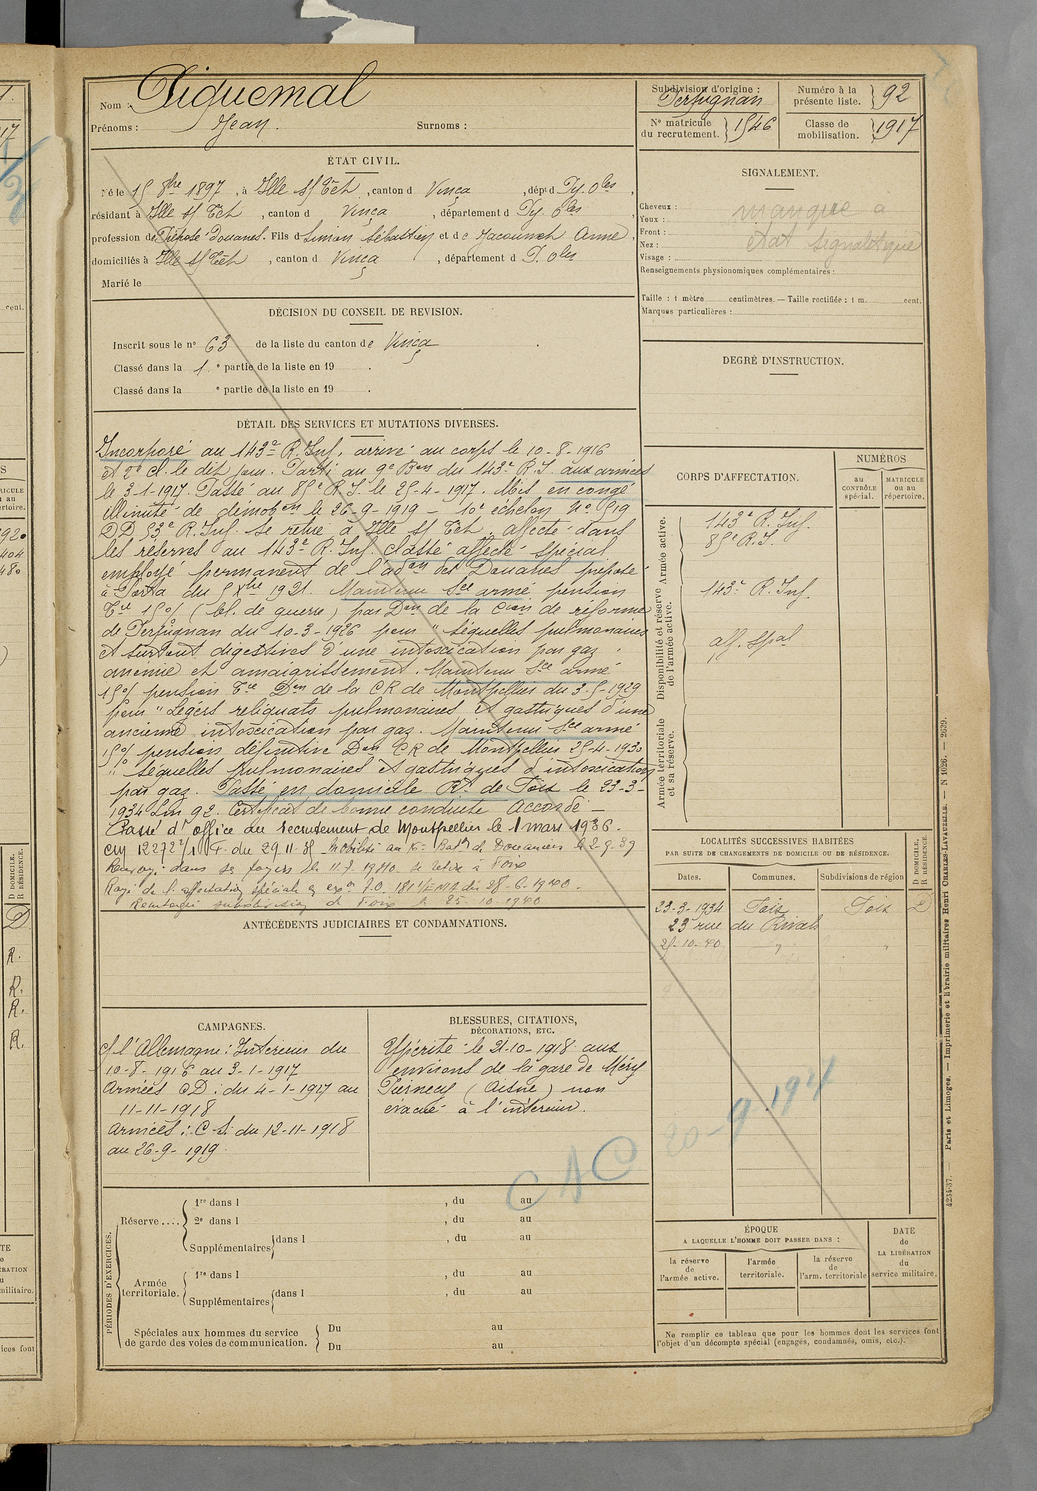 Nom : Piguemal
Prénoms : Jean. Surnoms :
Subdivision d'origine : Perpignan
Numéro à la présente liste. 92
N° matricule du recrutement. 1546
Classe de mobilisation. 1917
ÉTAT CIVIL.
Né le 15 8bre 1897, à Ille s/ Têt, canton d Vinça, dépt d Py. Oles,
résidant à Ille s/ Têt, canton d Vinça, département d Py. Oles,
profession de Préposé Douanes. Fils d Simon Sébastien et de Anne,
domiciliés à Ille s/ Têt, canton d Vinça, département d P. Oles
Marié le
SIGNALEMENT.
Cheveux : manque a
Yeux :
Front : état signalétique
Nez :
Visage :
Renseignements physionomiques complémentaires :
Taille : 1 mètre centimètres. — Taille rectifiée : 1 m. cent.
Marques particulières :
DÉCISION DU CONSEIL DE REVISION.
Inscrit sous le n° 63 de la liste du canton de Vinça
Classé dans la 1 e partie de la liste en 19 .
Classé dans la e partie de la liste en 19 .
DEGRÉ D'INSTRUCTION.
DÉTAIL DES SERVICES ET MUTATIONS DIVERSES.
Incorporé au 143e R. Inf. arrivé au corps le 10-8-1916
et 2e cl. le dit jour. Parti au 9e Bon du 143e R.I. aux armées
le 3-1-1917. Passé au 85e R.I. le 25-4-1917. Mis en congé
illimité de démobon le 26-9-1919 - 10e échelon N° 519
DD 53e R. Inf. se retire à Ille s/ Tet, affecté dans
les réserves au 143e R. Inf. Classé affecté spécial
employé permanent de l'adon des Douanes préposé
à Porta du 5 Xbre 1921. Maintenu Sce armé pension
Tre 15% (bl. de guerre) par Don de la Cion de réforme
de Perpignan du 10-3-1926 pour " séquelles pulmonaires
et surtout digestives d'une intoxication par gaz,
anémie et amaigrissement. Maintenu Sce armé
15% pension Tre Don de la CR de Montpellier du 3-5-1929
pour " Légers reliquats pulmonaires et gastriques d'une
ancienne intoxication par gaz. Maintenu Sce armé
15% pension définitive Don CR de Montpellier 25-4-1930
" séquelles pulmonaires et gastriques d'intoxication
par gaz. Passé en domicile Rt de Foix le 23-3-
1934 Lin 92. Certificat de bonne conduite Accordé —
Passé d'office au recrutement de Montpellier le 1 mars 1936.
CM 12272 du 29.11.35 Mobilisé au Batn de Douaniers le 2-9-39
Renvoyé dans ses foyers le 11-7-1940 se retire à Foix
Rayé de l'affectation spéciale en exon du 28-6-1940.
Réintégré subdivision de Foix le 25-10-1940
CORPS D'AFFECTATION.
NUMÉROS
au CONTRÔLE spécial.
MATRICULE ou au répertoire.
Armée active.
143e R. Inf.
85e R.I.
Disponibilité et réserve de l'armée active.
143e R. Inf.
aff. spal
Armée territoriale et sa réserve.
LOCALITÉS SUCCESSIVES HABITÉES
PAR SUITE DE CHANGEMENTS DE DOMICILE OU DE RÉSIDENCE.
Dates. Communes. Subdivisions de région
D DOMICILE. R RÉSIDENCE.
23-3-1934 Foix Foix D
23 rue du Rival
25-10-40 " "
ANTÉCÉDENTS JUDICIAIRES ET CONDAMNATIONS.
CAMPAGNES.
C/ l'Allemagne : Intérieur du
10-8-1916 au 3-1-1917
Armées CD : du 4-1-1917 au
11-11-1918
Armées : C.S. du 12-11-1918
au 26-9-1919
BLESSURES, CITATIONS,
DÉCORATIONS, ETC.
Ypérité le 21-10-1918 aux
environs de la gare de Mézy
(Aisne) non
évacué à l'intérieur.
CAC 20-9-194
PÉRIODES D'EXERCICES.
Réserve....
1re dans l , du au
2e dans l , du au
Supplémentaires dans l , du au
Armée territoriale.
1re dans l , du au
Supplémentaires dans l , du au
Spéciales aux hommes du service
de garde des voies de communication.
Du au
Du au
ÉPOQUE
A LAQUELLE L'HOMME DOIT PASSER DANS :
la réserve de l'armée active.
l'armée territoriale.
la réserve de l'arm. territoriale
DATE de LA LIBÉRATION du service militaire.
Ne remplir ce tableau que pour les hommes dont les services font
l'objet d'un décompte spécial (engagés, condamnés, omis, etc.).
4234-37. — Paris et Limoges. — Imprimerie et librairie militaires Henri CHARLES-LAVAUZELLE. — N 1026. — 2639.